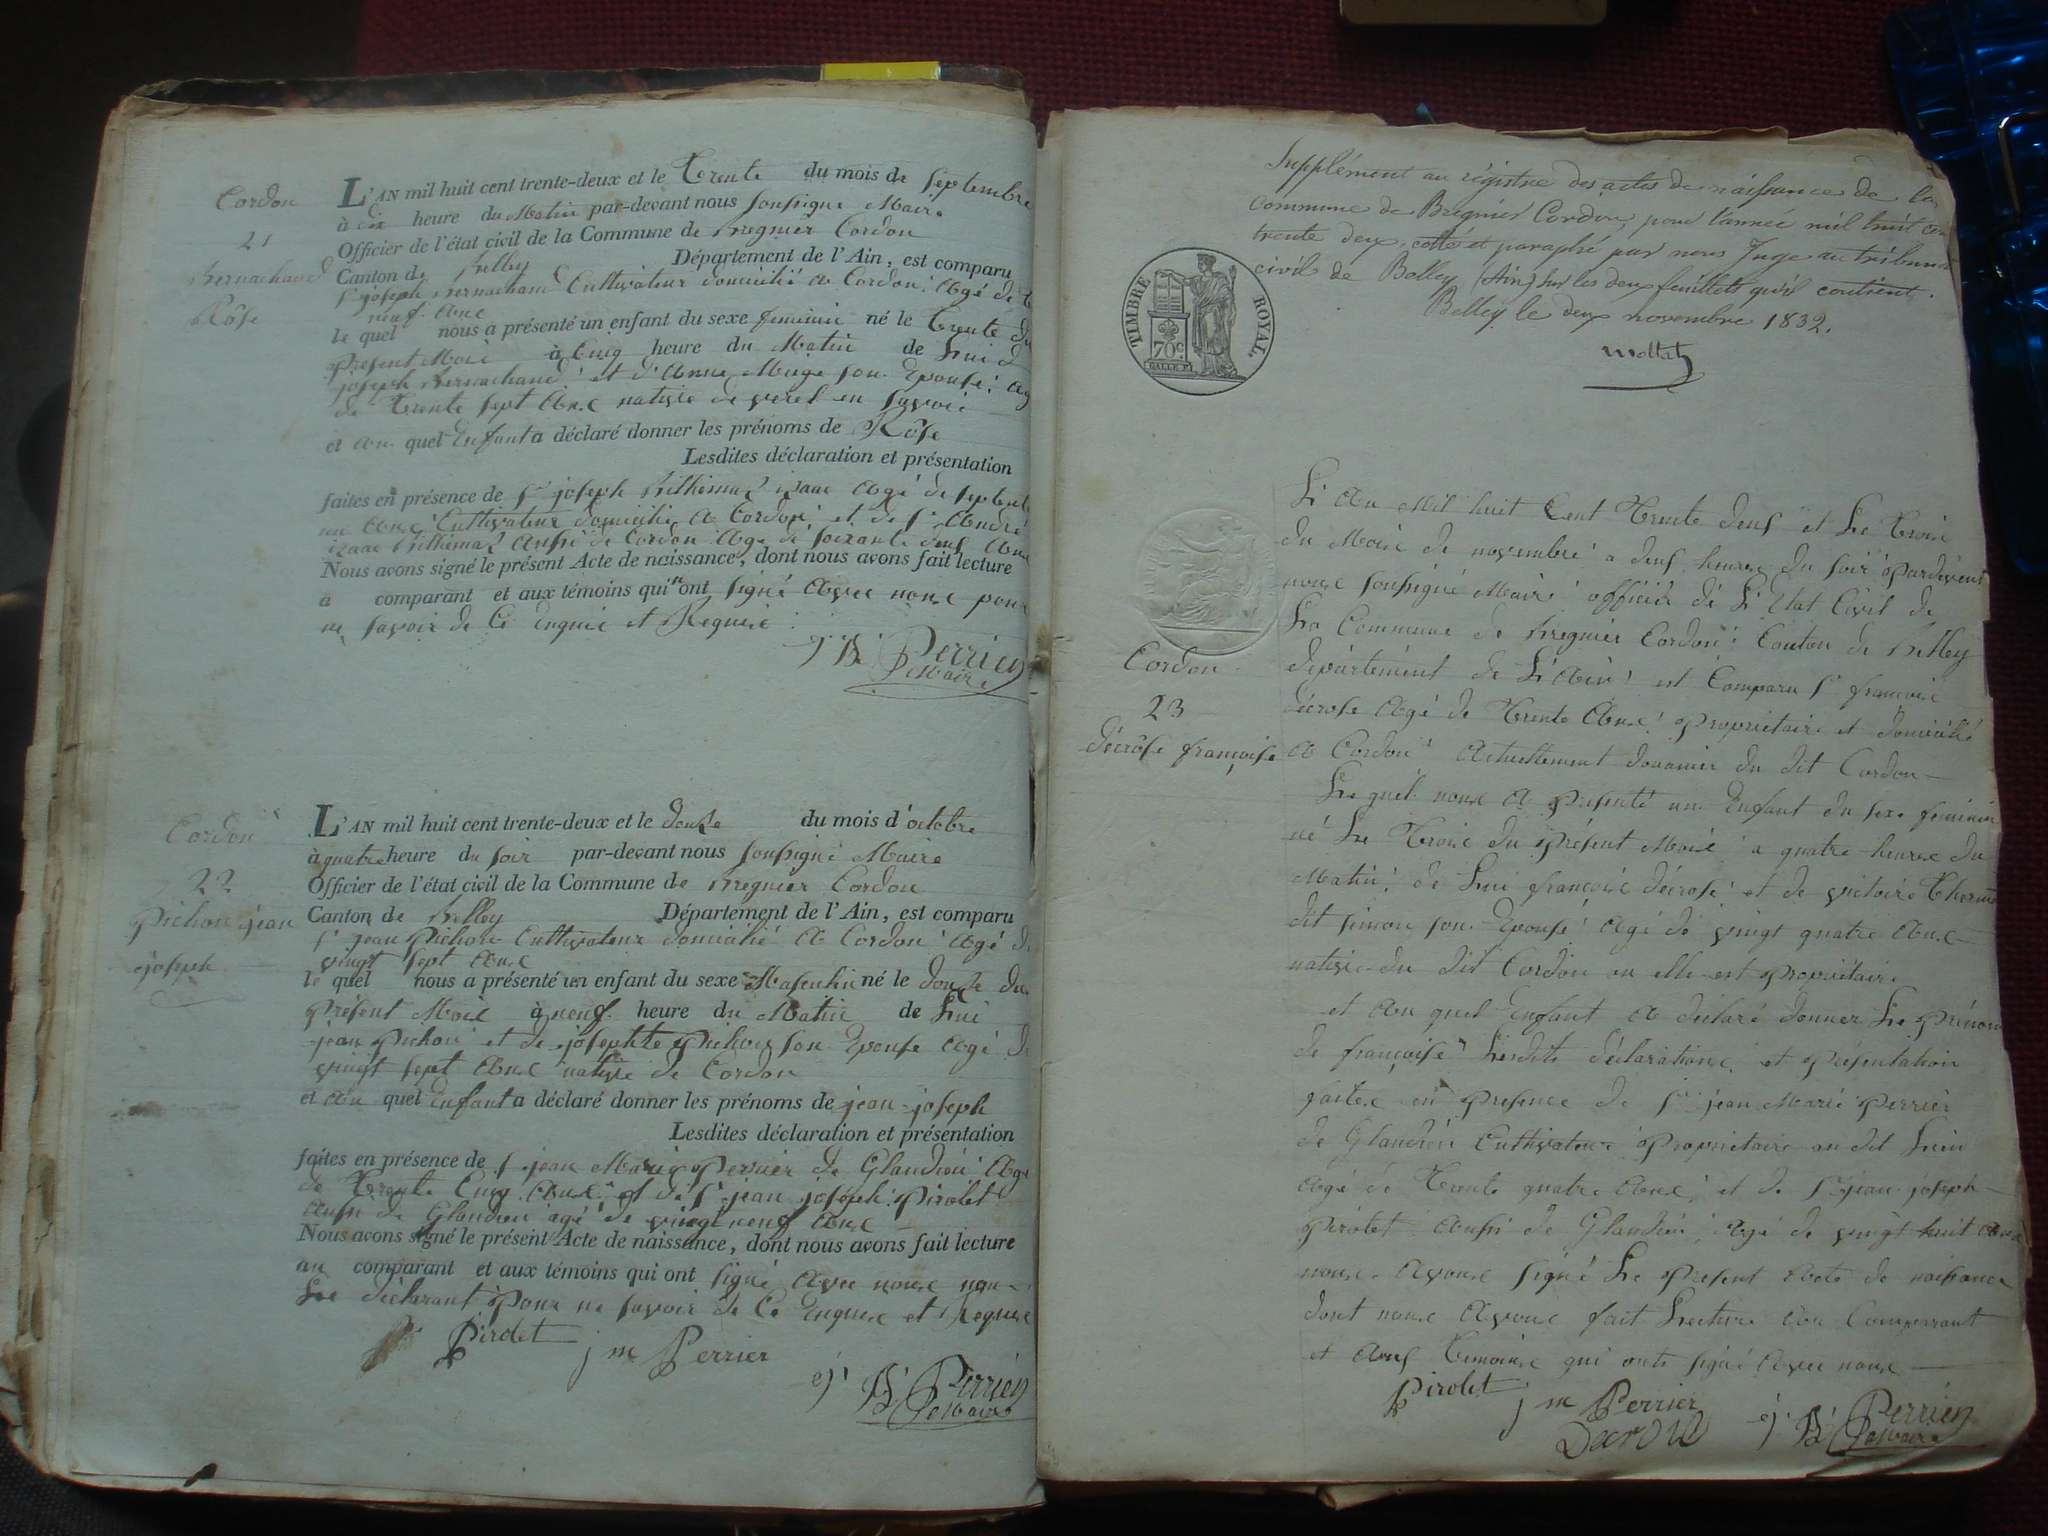 Cordon
21
Bernachand
Rôse
L'AN mil huit cent trente-deux et le Trente du mois de septembre
à dix heure du Matin par-devant nous soussigné Maire
Officier de l'état civil de la Commune de Bregnier Cordon
Canton de Belley Département de l'Ain, est comparu
Sr joseph Bernachand Cultivateur domicilié a Cordon agé de
neuf ans
le quel nous a présenté un enfant du sexe feminin né le Trente du
present Mois à Cinq heure du Matin de Lui
joseph Bernachand et d'Anne Muge son Epouse
de Trente sept ans native de verel en savoie
et au quel Enfant a déclaré donner les prénoms de Rôse
Lesdites déclaration et présentation
faites en présence de Sr joseph Billiémaz izaac agé de septante
un ans Cultivateur domicilié a Cordon et de Sr André
izaac Billiémaz aussi de Cordon agé de soixante deux ans
Nous avons signé le présent Acte de naissance, dont nous avons fait lecture
a comparant et aux témoins qui n'ont signé avec nous pour
ne savoir de Ce Enquis et Requis
j B Perrier
maire
Cordon
22
Pichon jean
joseph
L'AN mil huit cent trente-deux et le douze du mois d'octobre
à quatre heure du soir par-devant nous soussigné Maire
Officier de l'état civil de la Commune de Bregnier Cordon
Canton de Belley Département de l'Ain, est comparu
Sr jean Pichon Cultivateur domicilié a Cordon agé de
vingt sept ans
le quel nous a présenté un enfant du sexe Masculin né le douze du
présent Mois à neuf heure du Matin de Lui
jean Pichon et de josephte Pichon son Epouse agé de
vingt sept ans native de Cordon
et au quel Enfant a déclaré donner les prénoms de jean-joseph
Lesdites déclaration et présentation
faites en présence de Sr jean Marie Perrier de Glandieu agé
de Trente Cinq ans et de Sr jean joseph Pirolet
aussi de Glandieu agé de vingt neuf ans
Nous avons signé le présent Acte de naissance, dont nous avons fait lecture
au comparant et aux témoins qui ont signé avec nous non
Le déclarant Pour ne savoir de Ce Enquis et Requis
Pirolet j m Perrier
j B Perrier
maire
Supplément au régistre des actes de naissance de la
commune de Bregnier Cordon, pour l'année mil huit cent
trente deux, cotté et paraphé par nous Juge au tribunal
civil de Belley (Ain) sur les deux feuillets qu'il contient.
Belley le deux novembre 1832.
TIMBRE ROYAL.
70c
Cordon
23
décrôse françoise
L'an Mil huit Cent Trente deux et Le Trois
du Mois de novembre a deux heures du soir Pardevant
nous soussigné Maire officier de L'Etat Civil de
La Commune de Bregnier Cordon Canton de Belley
département de L'Ain est Comparu Sr françois
décrose agé de Trente ans Proprietaire et domicilié
a Cordon Actuellement douanier du dit Cordon
Le quel nous a Présenté un Enfant du sexe féminin
né Le Trois du Présent Mois a quatre heures du
Matin de Lui françois décrose et de victoire
dit simon son Epouse agé de vingt quatre ans
native du dit Cordon ou elle est Propriétaire
et au quel Enfant a déclaré donner Le Prénom
de françoise Lesdite déclarations et Présentation
faites en Présence de Sr jean Marie Perrier
de Glandieu Cultivateur Propriétaire au dit Lieu
agé de Trente quatre ans et de Sr jean joseph
Pirolet aussi de Glandieu agé de vingt huit ans
nous avons signé Le Présent acte de naissance
dont nous avons fait Lecture au Comparant
et aux Témoins qui onts signé avec nous
Pirolet j m Perrier
Decrose j B Perrier
maire